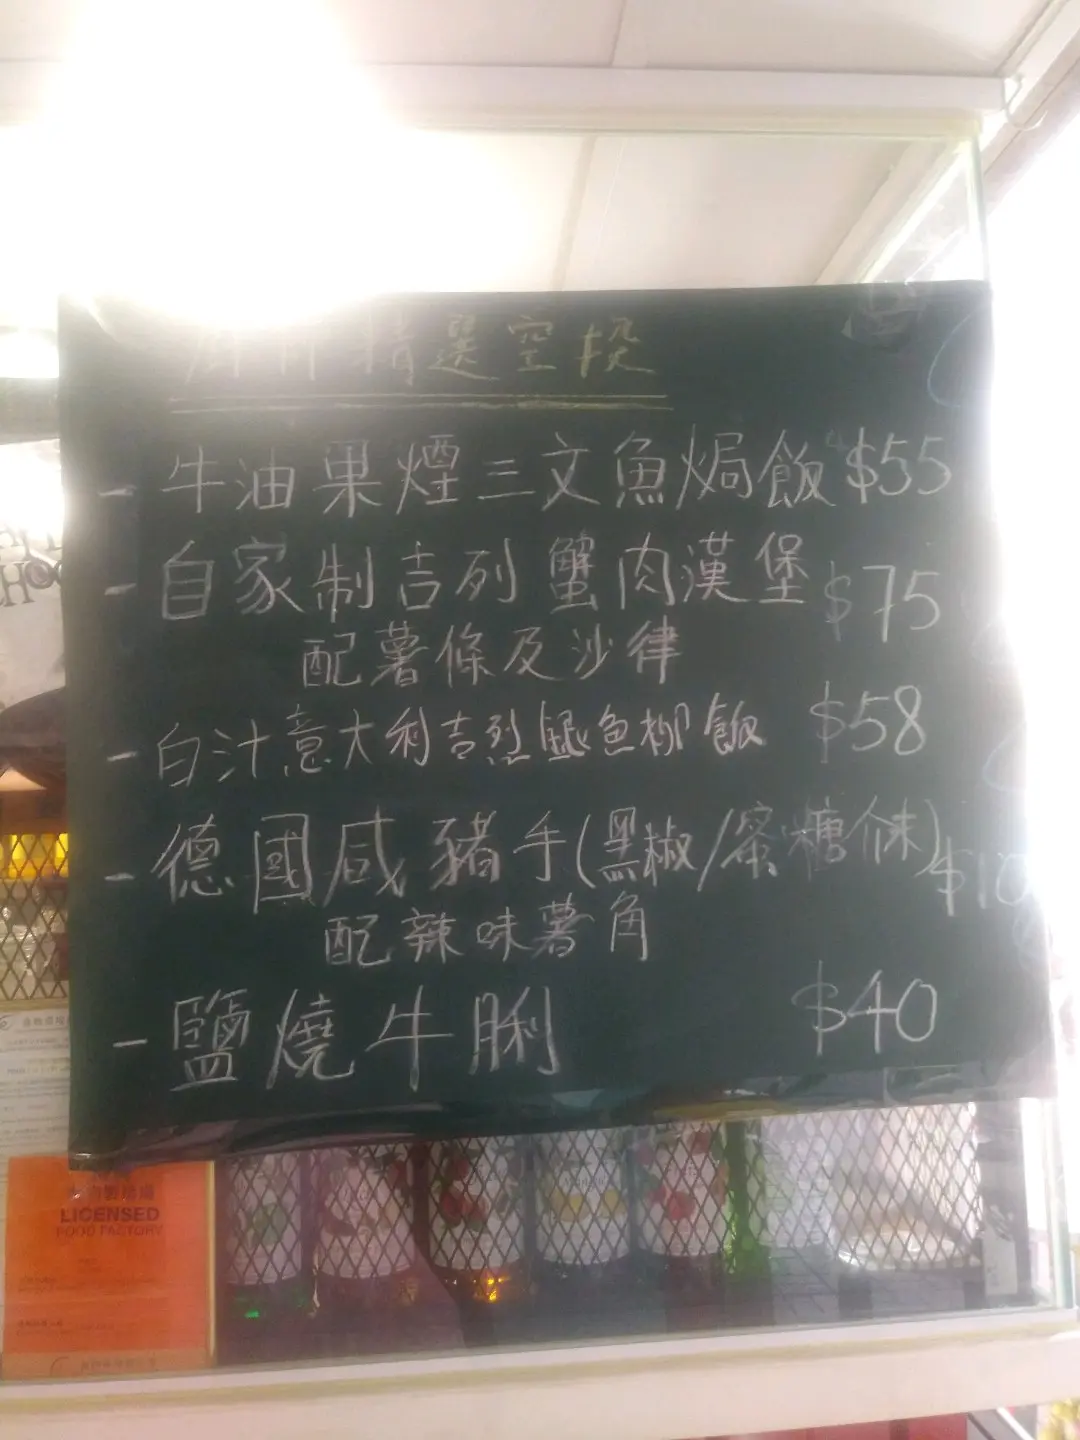 精選空投
- 牛油果煙三文魚焗飯 $55
- 自家制吉列蟹肉漢堡 $75
配薯條及沙律
- 白汁意大利吉烈鮭魚柳飯 $58
- 德國咸豬手(黑椒/蜜糖介末) $10
配辣味薯角
- 鹽燒牛脷 $40
LICENSED
FOOD FACTORY